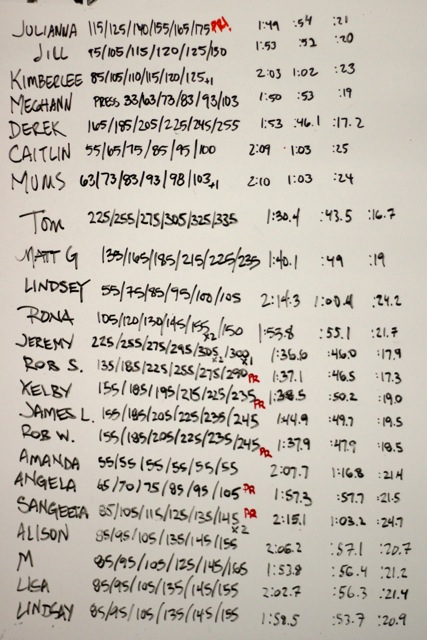 JULIANNA 115/125/140/155/165/175 PR! 1:49 :54 :21
JILL 95/105/115/120/125/130 1:53 :52 :20
KIMBERLEE 85/105/110/115/120/125+1 2:03 1:02 :23
MEGHANN PRESS 33/63/73/83/93/103 1:50 :53 :19
DEREK 165/185/205/225/245/255 1:53 :46.1 :17.2
CAITLIN 55/65/75/85/95/100 2:09 1:03 :25
MUMS 63/73/83/93/98/103+1 2:10 1:03 :24
TOM 225/255/275/305/325/335 1:30.4 :43.5 :16.7
MATT G 135/165/185/215/225/235 1:40.1 :49 :19
LINDSEY 55/75/85/95/100/105 2:14.3 1:00.4 :24.2
RONA 105/120/130/145/155 x2/150 1:55.8 :55.1 :21.7
JEREMY 225/255/275/295/305 x2/300 x1 1:36.6 :46.0 :17.9
ROB S. 135/185/225/255/275/290 PR 1:37.1 :46.5 :17.3
KELBY 155/185/195/215/225/235 PR 1:38.5 :50.2 :19.0
JAMES L. 155/185/205/225/235/245 1:44.9 :49.7 :19.5
ROB W. 155/185/205/225/235/245 PR 1:37.9 :47.9 :18.5
AMANDA 55/55/55/55/55/55 2:07.7 1:16.8 :21.4
ANGELA 65/70/75/85/95/105 PR 1:57.3 :57.7 :21.5
SANGEETA 85/105/115/125/135/145 x2 PR 2:15.1 1:03.2 :24.7
ALISON 85/95/105/135/145/155 2:06.2 :57.1 :20.7
M 85/95/105/125/145/165 1:53.8 :56.4 :21.2
LISA 85/95/105/135/145/155 2:02.7 :56.3 :21.4
LINDSAY 85/95/105/135/145/155 1:58.5 :53.7 :20.9